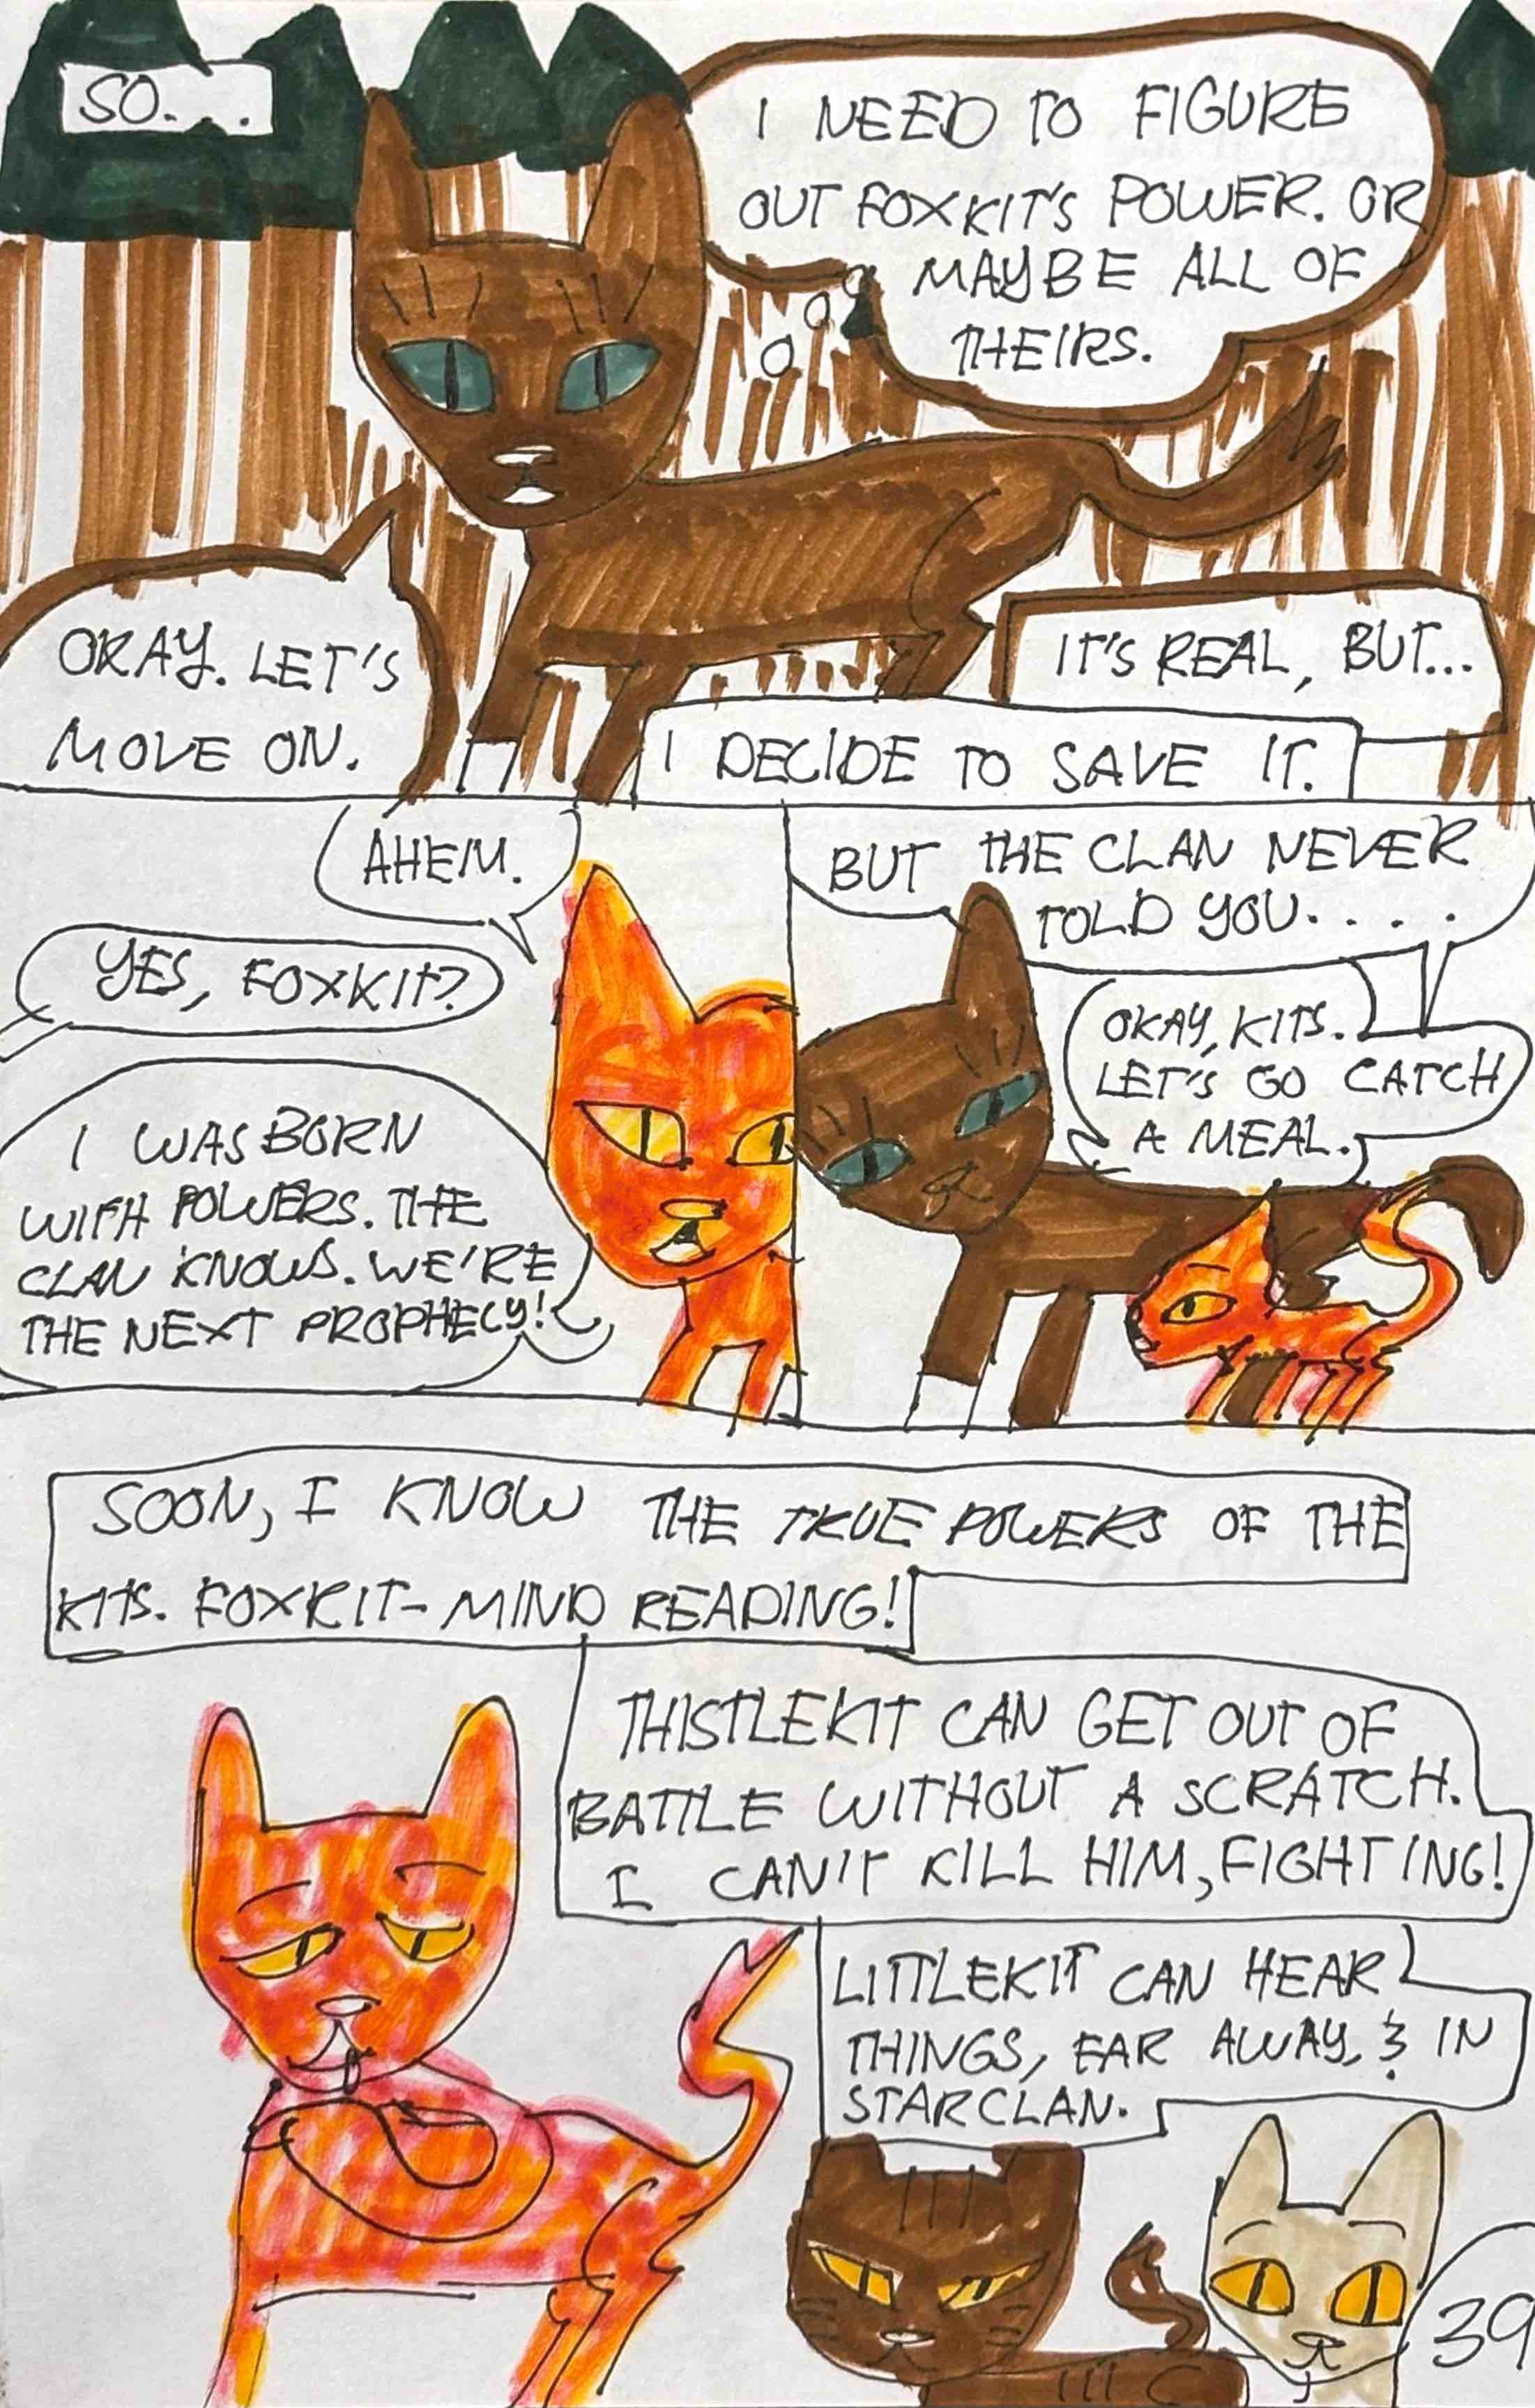 SO...
I NEED TO FIGURE
OUT FOXKIT'S POWER. OR
MAYBE ALL OF
THEIRS.
OKAY. LET'S
MOVE ON.
IT'S REAL, BUT...
I DECIDE TO SAVE IT.
AHEM.
YES, FOXKIT?
I WAS BORN
WITH POWERS. THE
CLAN KNOWS. WE'RE
THE NEXT PROPHECY!
BUT THE CLAN NEVER
TOLD YOU....
OKAY, KITS.
LET'S GO CATCH
A MEAL.
SOON, I KNOW THE TRUE POWERS OF THE
KITS. FOXKIT- MIND READING!
THISTLEKIT CAN GET OUT OF
BATTLE WITHOUT A SCRATCH.
I CAN'T KILL HIM, FIGHTING!
LITTLEKIT CAN HEAR
THINGS, FAR AWAY, & IN
STARCLAN.
39